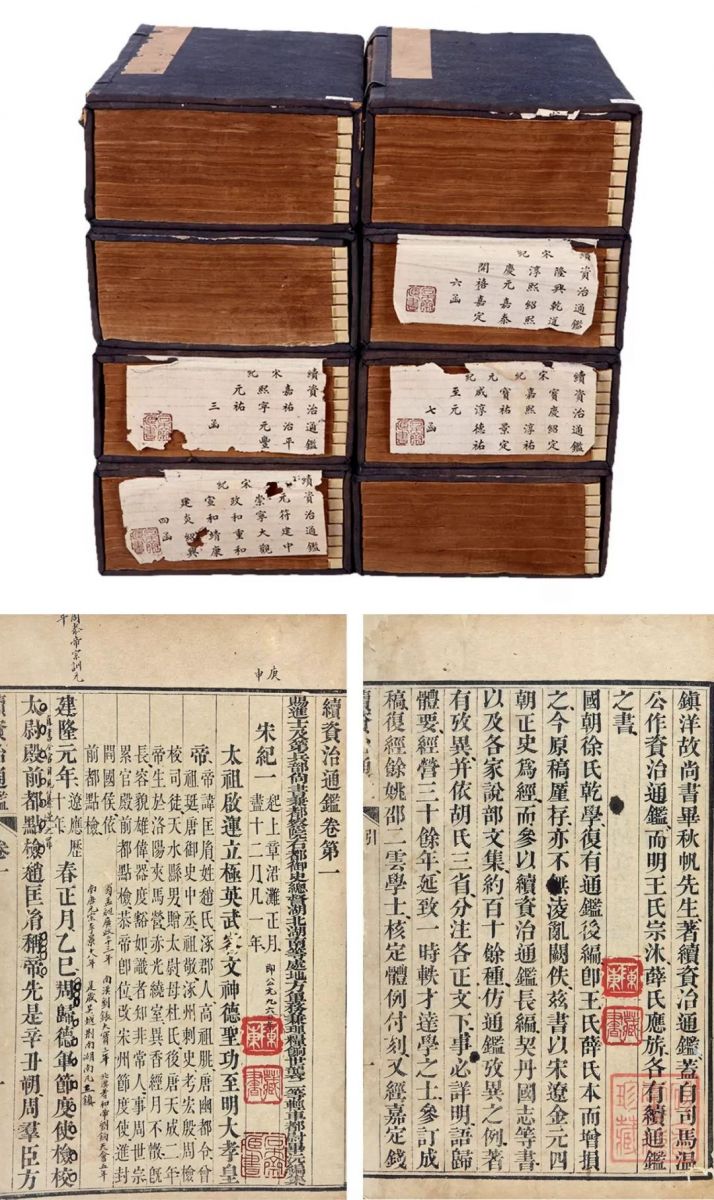 續資治通鑑
宋紀
隆興乾道
淳熙紹熙
慶元嘉泰
開禧嘉定
六函
續資治通鑑
宋紀
嘉祐治平
熙寧元豐
元祐
三函
續資治通鑑
宋紀 元紀
寶慶紹定
嘉熙淳祐
寶祐景定
咸淳德祐
至元
七函
續資治通鑑
宋紀
元符建中
崇寧大觀
政和重和
宣和靖康
建炎紹興
四函
鎮洋故尚書畢秋帆先生著續資治通鑑蓋自司馬溫
公作資治通鑑而明王氏宗沐薛氏應旂各有續通鑑
之書
國朝徐氏乾學復有通鑑後編即王氏薛氏本而增損
之今原稿厪存亦不無淩亂闕佚茲書以宋遼金元四
朝正史為經而參以續資治通鑑長編契丹國志等書
以及各家說部文集約百十餘種仿通鑑攷異之例著
有攷異并依胡氏三省分注各正文下事必詳明語歸
體要經營三十餘年延致一時軼才達學之士參訂成
稿復經餘姚邵二雲學士核定體例付刻又經嘉定錢
引
珍藏
庚申
續資治通鑑卷第一
賜進士及第兵部尚書兼都察院右都御史總督湖北湖南等處地方軍務兼理糧餉世襲二等輕車都尉畢沅編集
宋紀一 起上章涒灘正月盡十二月凡一年 即公元九六
太祖啟運立極英武睿文神德聖功至明大孝皇
帝 帝諱匡胤姓趙氏涿郡人高祖朓唐幽都令曾
祖珽唐御史中丞祖敬涿州刺史考宏殷周檢
校司徒天水縣男贈太尉母杜氏後唐天成二年
帝生於洛陽夾馬營赤光繞室異香經月不散既
長容貌雄偉器度豁如識者知非常人事周世宗
累官殿前都點檢恭帝即位改宋州節度使進封
開國侯依
前都點檢
建隆元年 遼應歷十年 春正月乙巳周歸德軍節度使檢校
太尉殿前都點檢趙匡胤稱帝先是辛丑朔周羣臣方
續資治通鑑 卷一